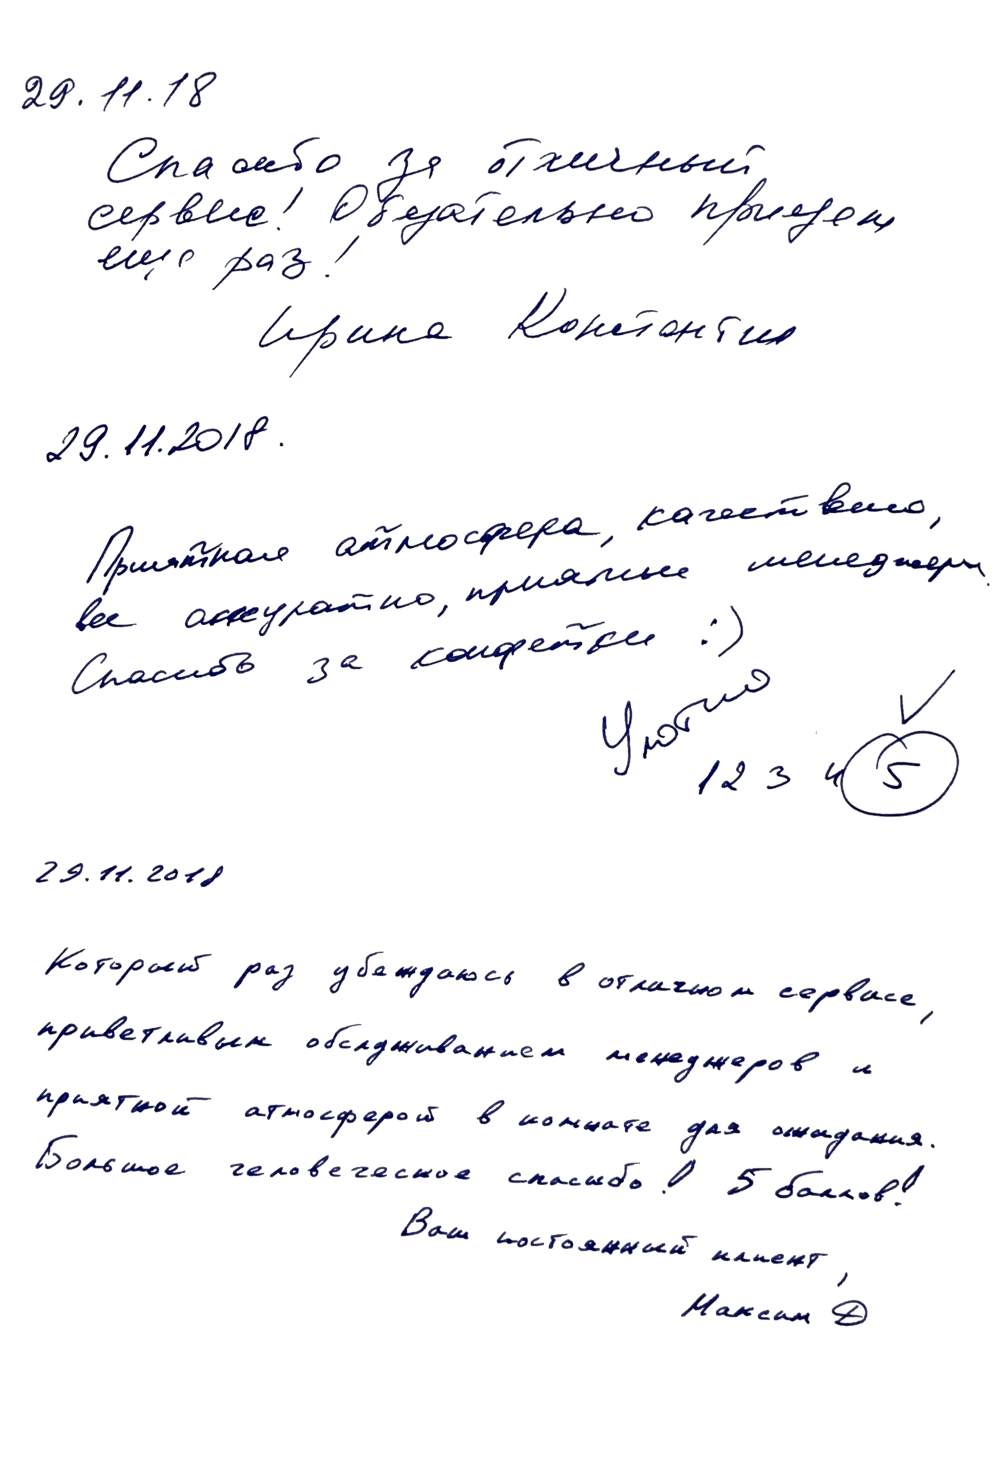 29.11.18
Спасибо за отличный
сервис! Обязательно приедем
еще раз!
Ирина Константин
29.11.2018.
Приятная атмосфера, качествено,
все аккуратно, приятные менеджеры.
Спасибо за конфетки :)
Уютно
1 2 3 4 5
29.11.2018
Который раз убеждаюсь в отличном сервисе,
приветливым обслуживанием менеджеров и
приятной атмосферой в комнате для ожидания.
Большое человеческое спасибо! 5 баллов!
Ваш постоянный клиент,
Максим Д